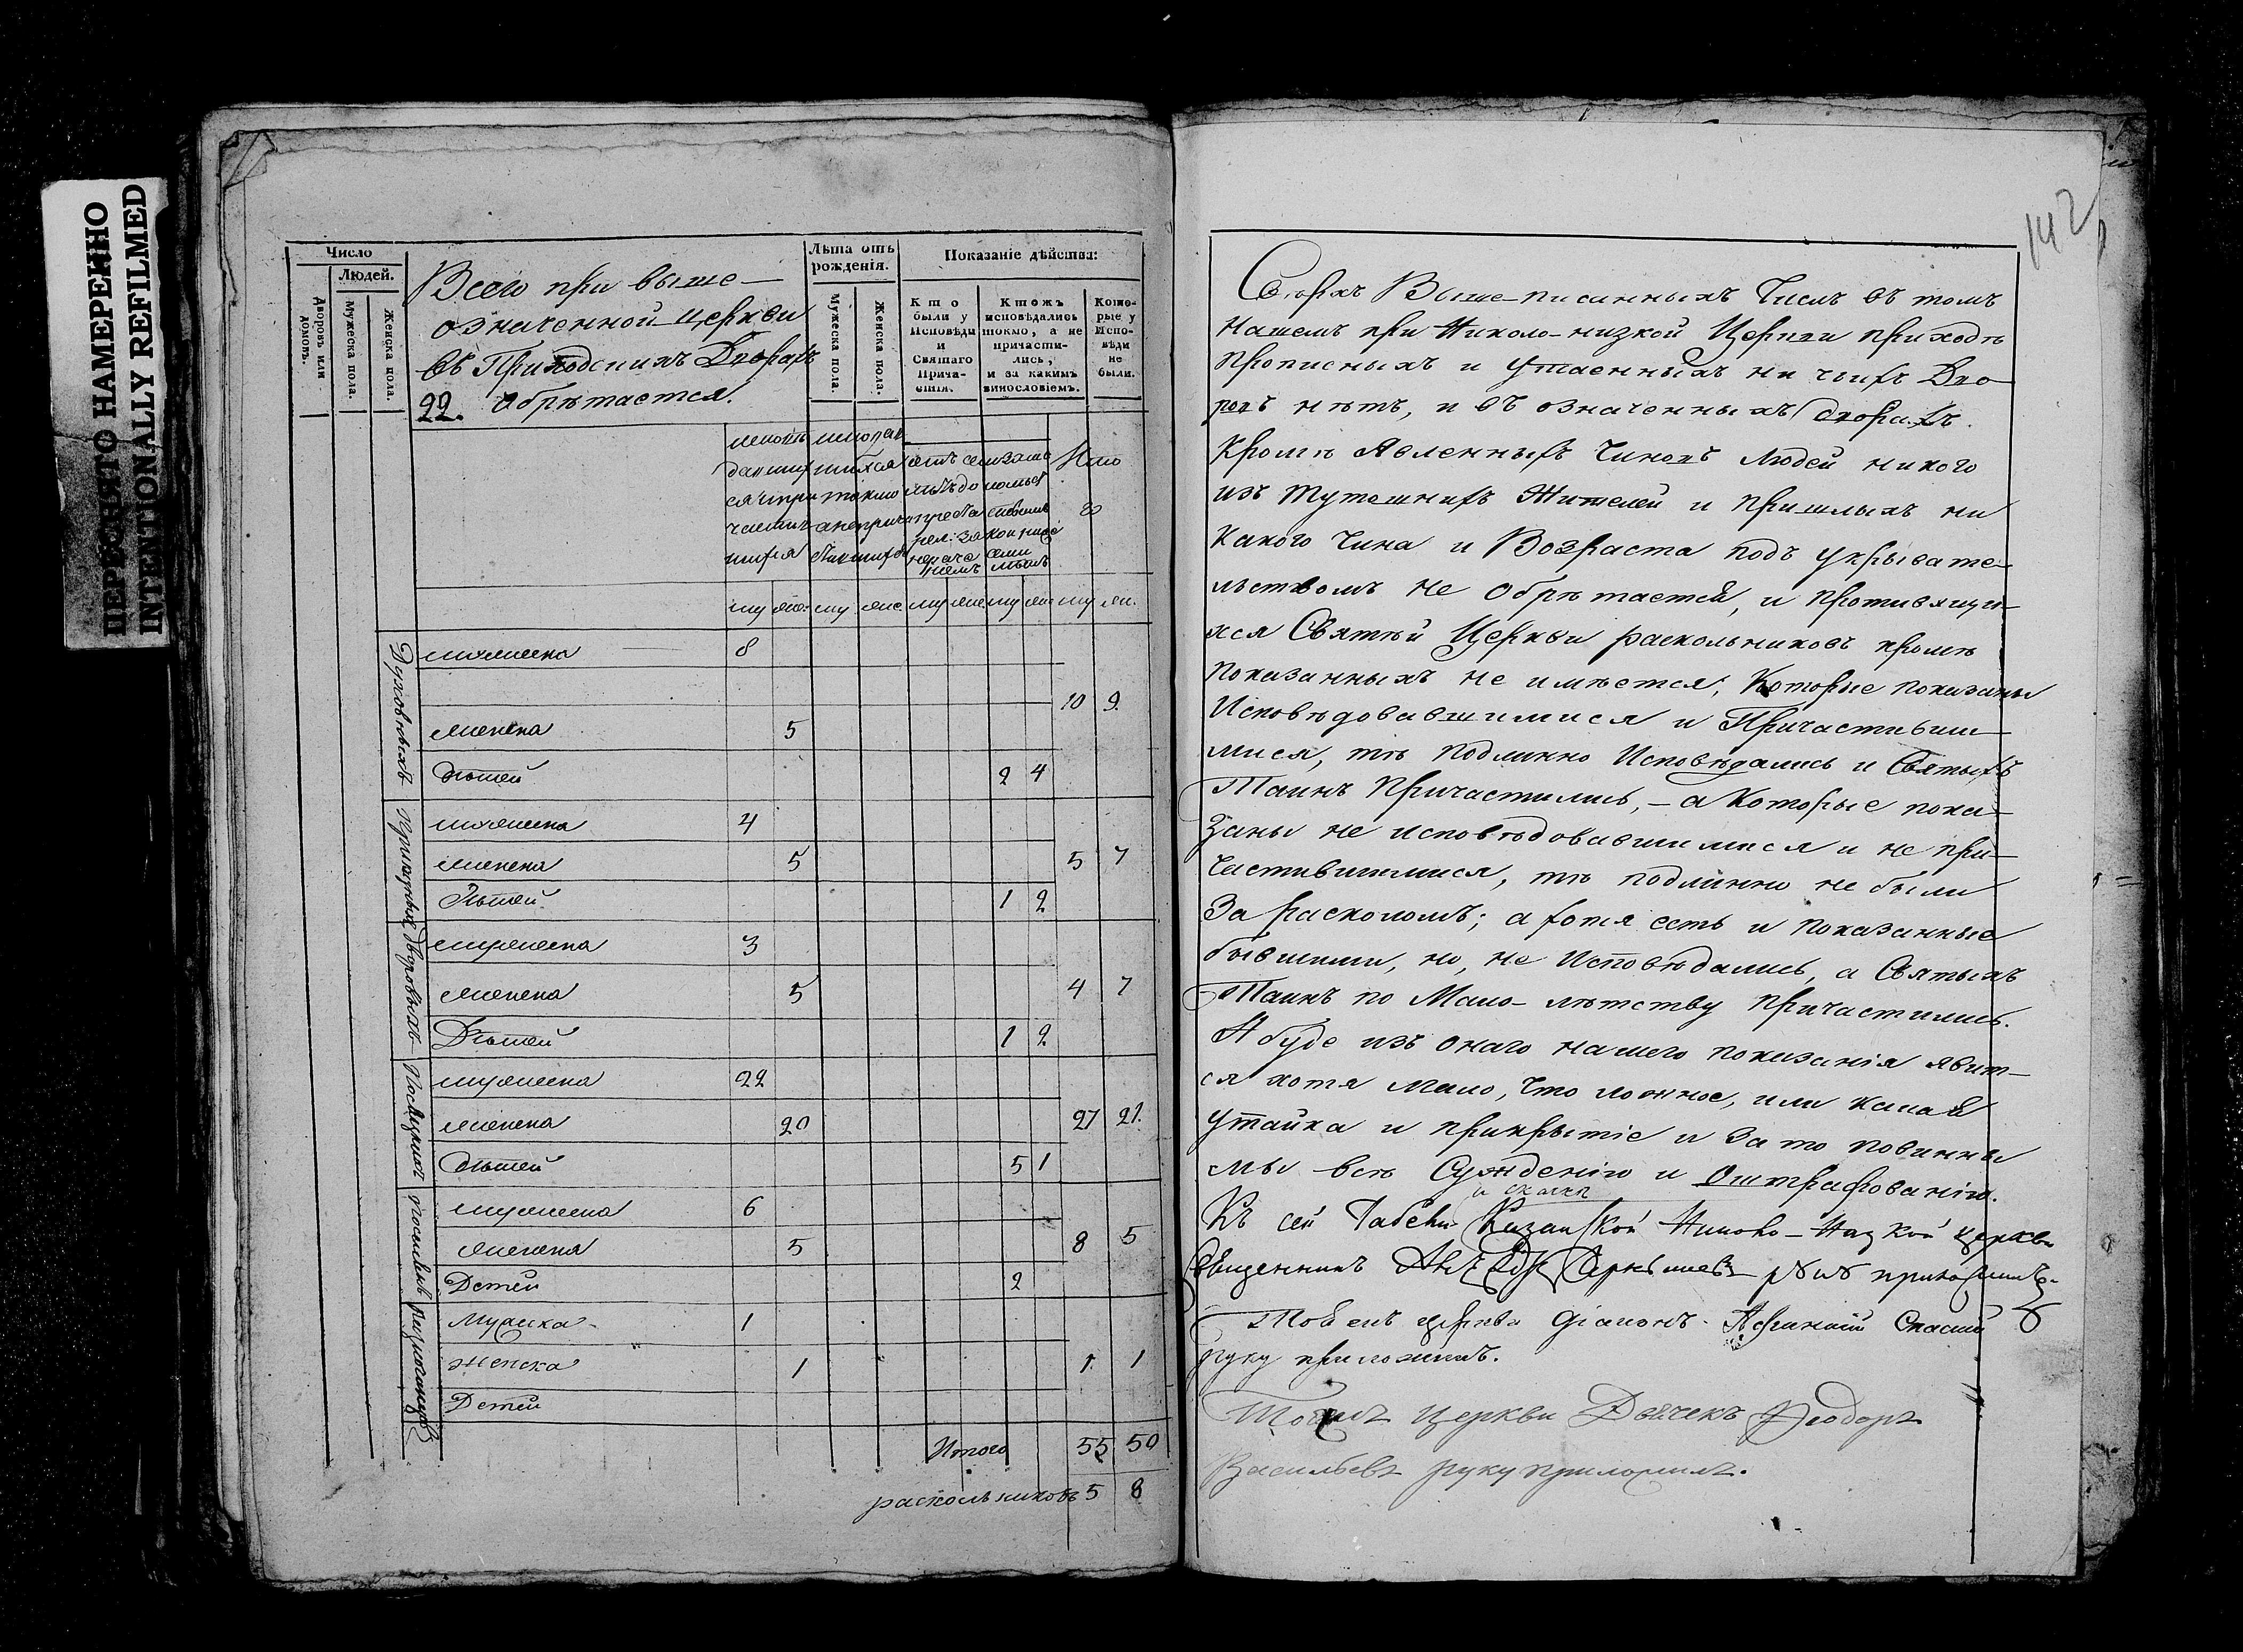 ПЕРЕСНЯТО НАМЕРЕННО
INTENTIONALLY REFILMED
Число
Людей.
Дворовъ или домовъ.
Мужеска пола.
Женска пола.
Всего при выше-
означенной церкви
въ Приходскихъ Дворахъ
22. обрѣтается.
Лѣта отъ рожденія.
Мужеска пола.
Женска пола.
Показаніе дѣйства:
Кто были у Исповѣди и Святаго Причастія.
Ктожъ исповѣдались токмо, а не причастились, и за какимъ винословіемъ.
Которые у Исповѣди не были.
му же. му же му же му же му же.
Духовныхъ
мужеска 8
10 9
женска 5
Дѣтей 2 4
Приказныхъ
мужеска 4
женска 5 5 7
Дѣтей 1 2
Дворовыхъ
мужеска 3
женска 5 4 7
Дѣтей 1 2
мужеска 22
женска 20 27 21
Дѣтей 5 1
мужеска 6
женска 5 8 5
Детей 2
Мужска 1
женска 1 1 1
Детей
Итого 55 50
раскольниковъ 5 8
142
Сверхъ Выше-писанныхъ Числъ въ томъ
Нашемъ при Николо-низкой Церкви приходѣ
прописныхъ и утаенныхъ ни чьихъ Дво-
ровъ нѣтъ, и въ означенныхъ дворахъ
Кромѣ Явленныхъ Чиновъ Людей никого
изъ тутешнихъ Жителей и пришлыхъ ни
Какого Чина и Возраста подъ укрывате-
льствомъ не обрѣтается, и противящи-
хся Святѣй Церкви раскольниковъ кромѣ
показанныхъ не имѣется; Которые показаны
Исповѣдовавшимися и Причастивши-
мися, тѣ подлинно Исповѣдались и Святыхъ
Таинъ Причастились, - а Которые пока-
заны не исповѣдовавшимися и не при-
частившимися, тѣ подлинно не были
За расколомъ; а хотя есть и показанные
бывшими, но, не Исповѣдались, а Святыхъ
Таинъ по Мало-лѣтству причастились.
А буде изъ онаго нашего показанія явит-
ся хотя мало, что ложное, или какая
утайка и прикрытіе и за то повинны
мы всѣ Сужденію и Оштрафованію.
и скаски
Къ сей Табели Казанской Николо-Низкой церкви
Священникъ руку приложилъ.
Тоя жъ церкви Діаконъ Афанасій Спаскій
руку приложилъ.
Тояжъ церкви Дьячекъ Феодоръ
Васильевъ руку приложилъ.